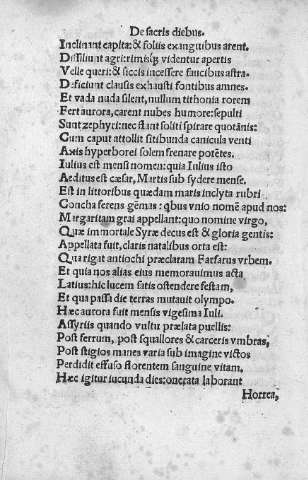 De sacris diebus.
Inclinant capita: & foliis exanguibus arent.
Dissiliunt agri: rimisq; videntur apertis
Velle queri: & siccis incessere faucibus astra.
Deficiunt clausis exhausti fontibus amnes.
Et vada nuda silent, nullum tithonia rorem
Fert aurora, carent nubes humore: sepulti
Sunt zephyri: nec stant soliti spirare quotānis:
Cum caput attollit sitibunda canicula venti
Axis hyperborei solem frenare potētes.
Iulius est mensi nomen: quia Iulius isto
Aeditus est cæsar, Martis sub sydere mense.
Est in littoribus quædam maris inclyta rubri
Concha ferens gēmas: qbus vnio nomē apud nos:
Margaritam grai appellant: quo nomine virgo,
Quæ immortale Syræ decus est & gloria gentis:
Appellata fuit, claris natalibus orta est:
Qua rigat antiochi præclaram Farfarus vrbem.
Et quia nos alias eius memorauimus acta
Latius: hic lucem satis ostendere festam,
Et qua passa die terras mutauit olympo.
Hæc aurora fuit mensis vigesima Iuli.
Assyriis quando vultu prælata puellis:
Post ferrum, post squallores & carceris vmbras,
Post stigios manes varia sub imagine victos
Perdidit effuso florentem sanguine vitam,
Hæc igitur iucunda dies: onerata laborant
Horrea,